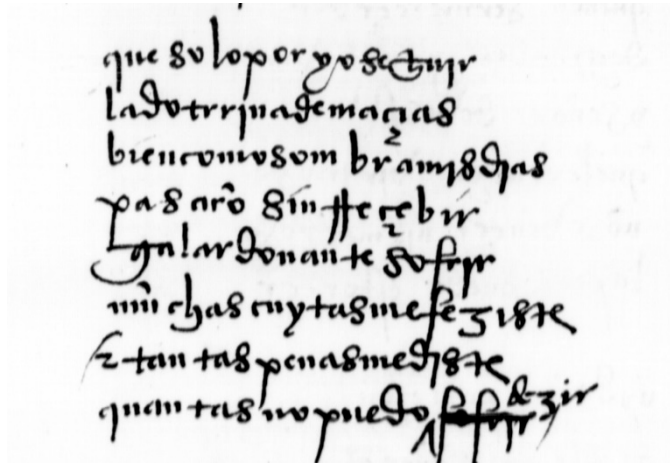 que solo por yo seguir
la dotrrina de maçias
bien como sombra mis dias
pasarō sin rreçebir
galardon ante sofrir
muchas cuytas me feziste
⁊ tantas penas me diste
quantas no puedo sofrir dezir